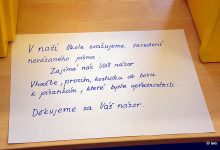 V naší škole zvažujeme zavedení
nevázaného písma.
Zajímá nás Váš názor.
Vhoďte, prosím, kostičku do boxu
s písankami, které byste upřednostnili.
Děkujeme za Váš názor.